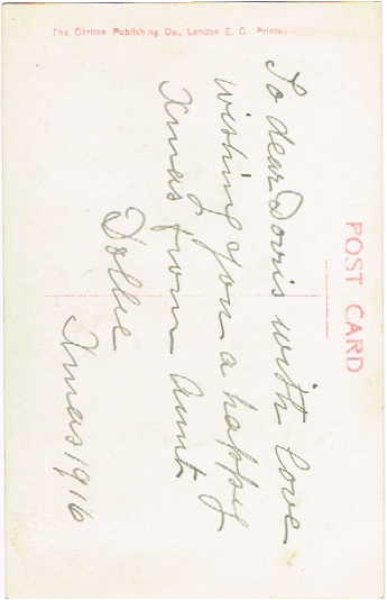 POST CARD
To dear Dorris with love
wishing you a happy
Xmas from Aunt
Dollie
Xmas 1916
The Publishing Co., London E. C. Printed